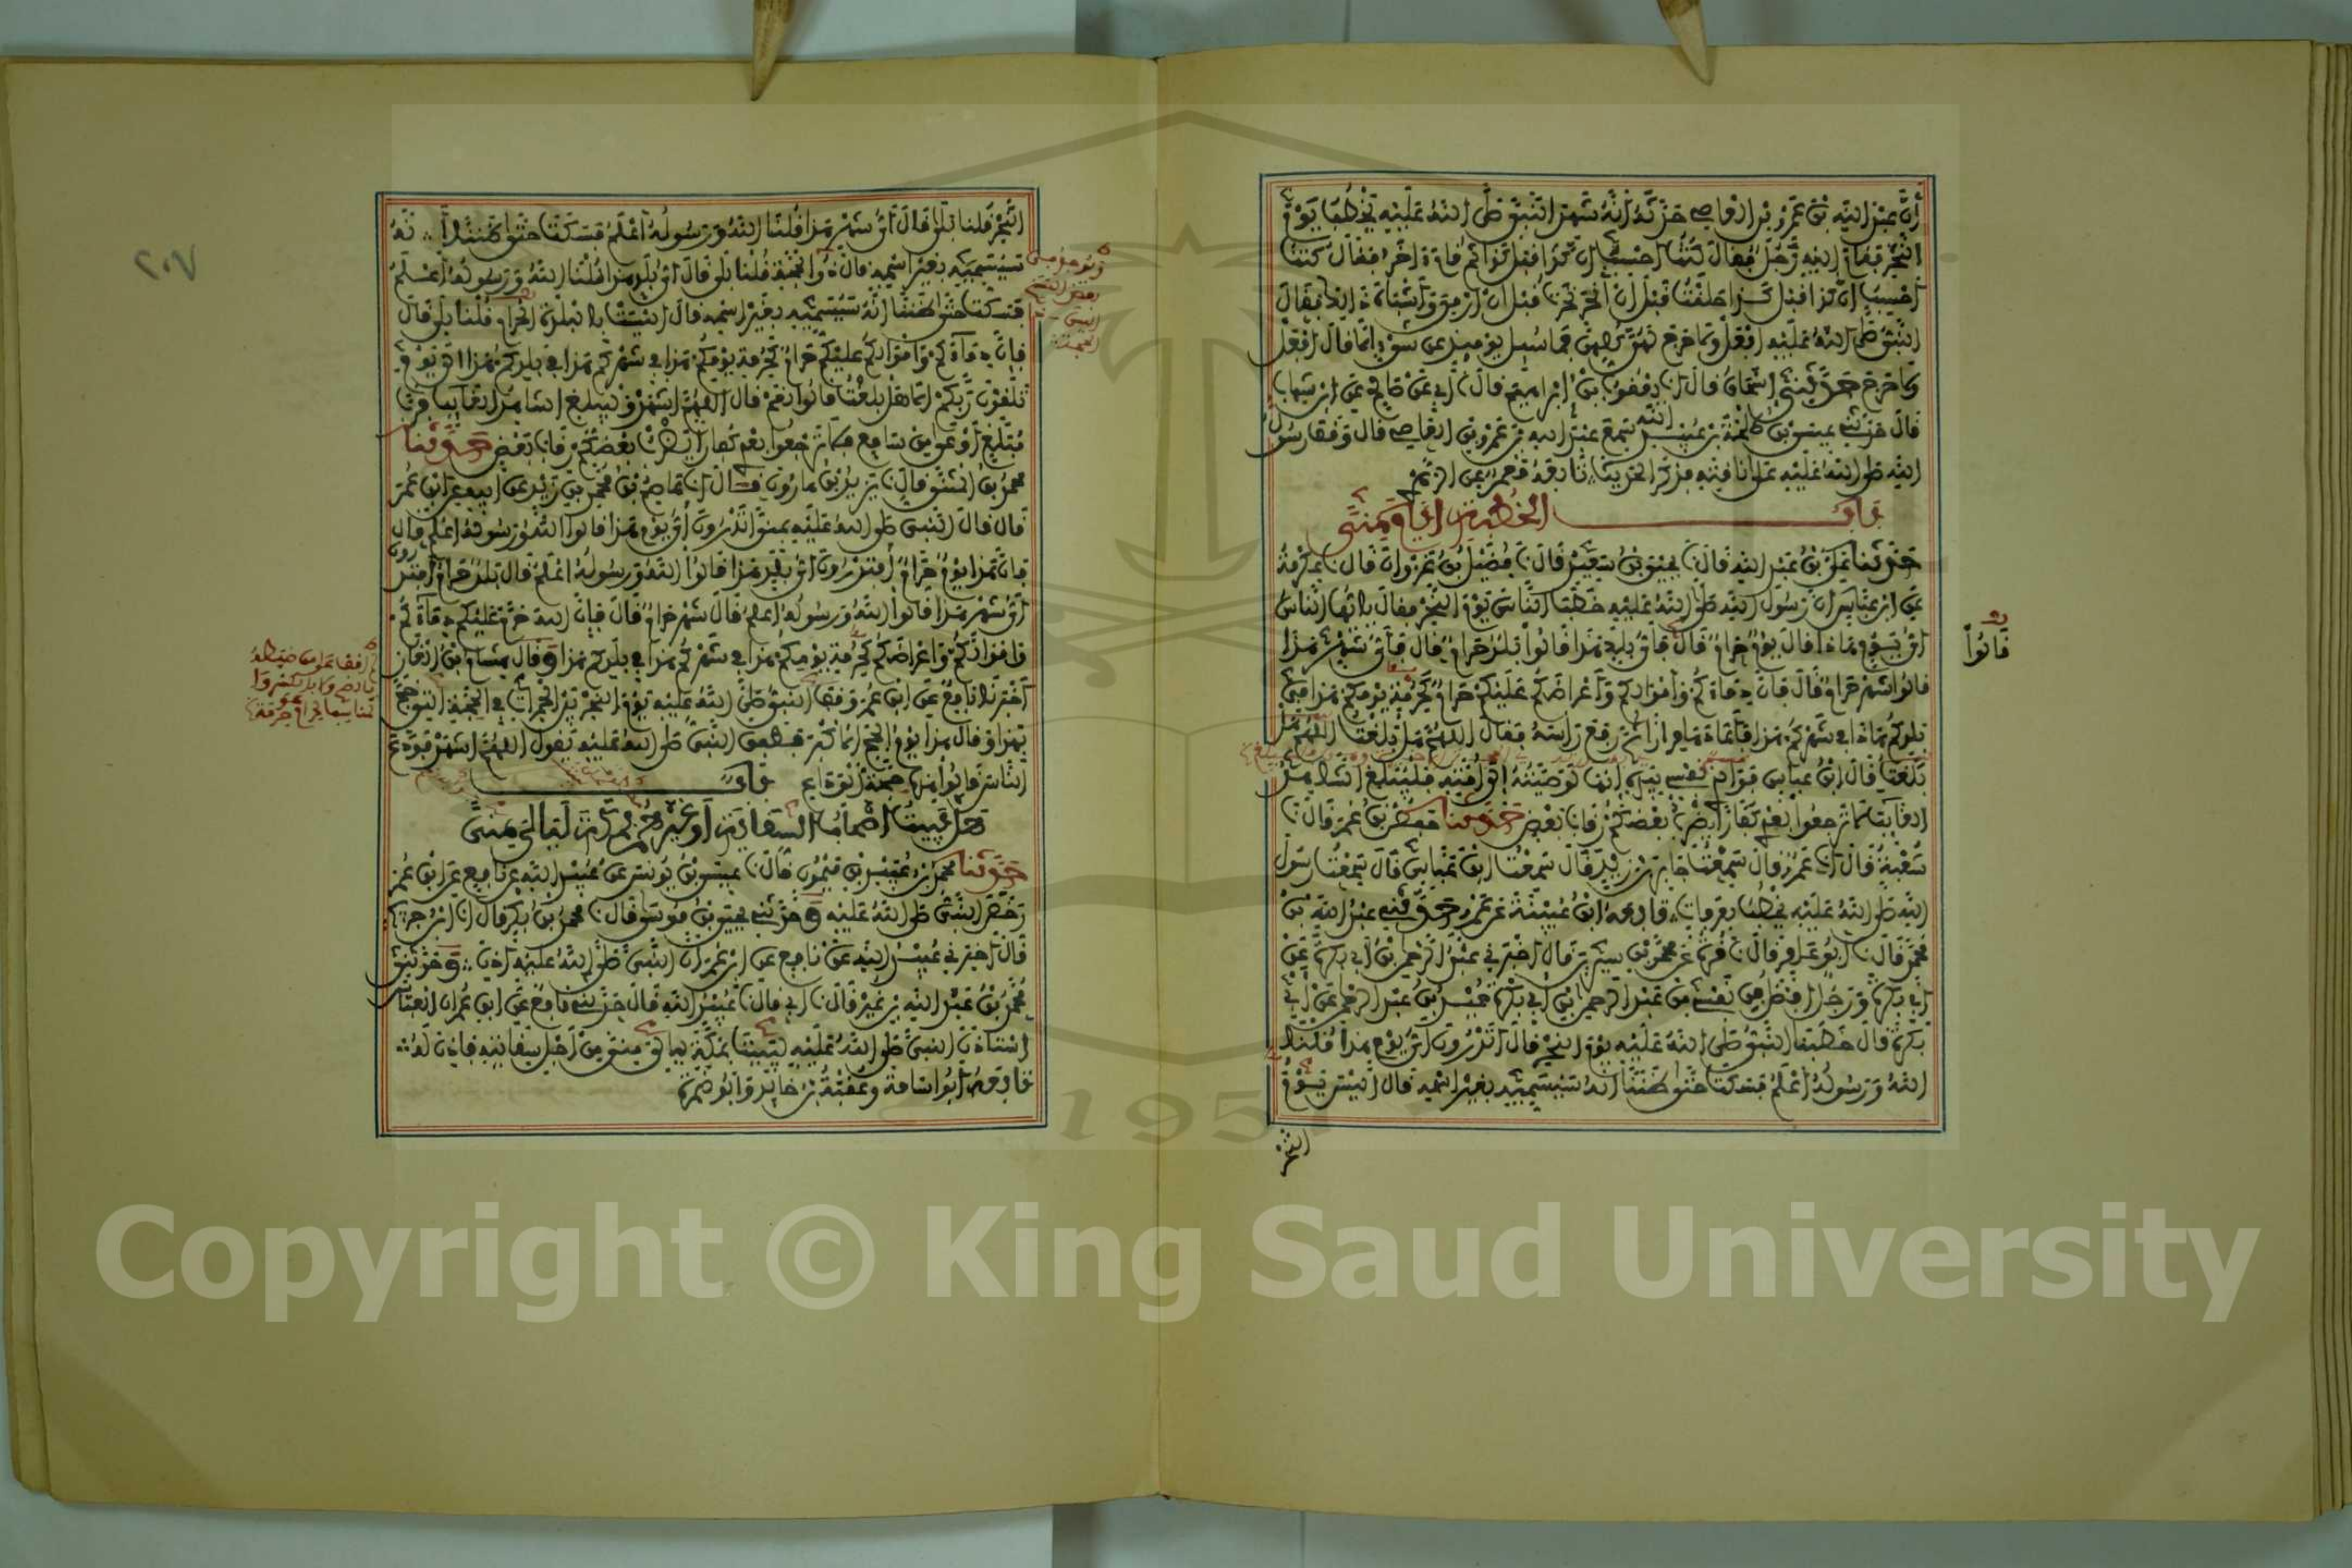 أَنَّ عبد الله بن عمرو بن العاصي حدّثه أنه شهد النبي صلى الله عليه يخطب يوم
النحر فقام إليه رجل فقال كنت أحسب أن كذا قبل كذا ثم قام آخر فقال كنت
أحسب أن كذا قبل كذا حلقت قبل أن أنحر نحرت قبل أن أرمي وأشباه ذلك فقال
النبي صلى الله عليه افعل ولا حرج لهن كلهن فما سئل يومئذ عن شيء إلا قال افعل
ولا حرج حدثني إسحاق قال انا يعقوب بن إبراهيم قال نا أبي عن صالح عن ابن شهاب
قال حدثني عيسى بن طلحة بن عبيد الله سمع عبد الله بن عمرو بن العاصي قال وقف رسول
الله صلى الله عليه على ناقته فذكر الحديث تابعه معمر عن الزهري
باب الخطبة أيام منى
حدثنا علي بن عبد الله قال نا يحيى بن سعيد قال نا فضيل بن غزوان قال نا عكرمة
عن ابن عباس أن رسول الله صلى الله عليه خطب الناس يوم النحر فقال يا أيها الناس
أي يوم هذا قال يوم حرام قال فأي بلد هذا قالوا بلد حرام قال فأي شهر هذا
قالوا
قالوا شهر حرام قال فإن دماءكم وأموالكم وأعراضكم عليكم حرام كحرمة يومكم هذا في
بلدكم هذا في شهركم هذا فأعادها مرارا ثم رفع رأسه فقال اللهم هل بلغت اللهم هل
بلغت قال ابن عباس فوالذي نفسي بيده إنها لوصيته إلى أمته فليبلغ الشاهد
الغايب لا ترجعوا بعدي كفارا يضرب بعضكم رقاب بعض حدثنا حفص بن عمر قال نا
شعبة قال انا عمرو قال سمعت جابر بن زيد قال سمعت ابن عباس قال سمعت رسول
الله صلى الله عليه يخطب بعرفات تابعه ابن عيينة عن عمرو حدثني عبد الله بن
محمد قال نا أبو عامر قال نا قرة عن محمد بن سيرين قال أخبرني عبد الرحمن بن أبي بكرة عن
أبي بكرة ورجل أفضل في نفسي من عبد الرحمن بن أبي بكرة حميد بن عبد الرحمن عن أبي
بكرة قال خطبنا النبي صلى الله عليه يوم النحر قال أتدرون أي يوم هذا قلنا
الله ورسوله أعلم فسكت حتى ظننا أنه سيسميه بغير اسمه قال أليس يوم
النحر
٢٠٧
النحر قلنا بلى قال أي شهر هذا قلنا الله ورسوله أعلم فسكت حتى ظننا أنه
سيسميه بغير اسمه قال ذو الحجة قلنا بلى قال أي بلد هذا قلنا الله ورسوله أعلم
فسكت حتى ظننا أنه سيسميه بغير اسمه قال أليست بالبلدة الحرام قلنا بلى قال
فإن دماءكم وأموالكم عليكم حرام كحرمة يومكم هذا في شهركم هذا في بلدكم هذا إلى يوم
تلقون ربكم ألا هل بلغت قالوا نعم قال اللهم اشهد فليبلغ الشاهد الغايب فرب
مبلغ أوعى من سامع فلا ترجعوا بعدي كفارا يضرب بعضكم رقاب بعض حدثنا
محمد بن المثنى قال نا يزيد بن هارون قال انا عاصم بن محمد بن زيد عن أبيه عن ابن عمر
قال قال النبي صلى الله عليه بمنى أتدرون أي يوم هذا قالوا الله ورسوله أعلم قال
فإن هذا يوم حرام أفتدرون أي بلد هذا قالوا الله ورسوله أعلم قال بلد حرام أفتدرون
أي شهر هذا قالوا الله ورسوله أعلم قال شهر حرام قال فإن الله حرم عليكم دماءكم
وأموالكم وأعراضكم كحرمة يومكم هذا في شهركم هذا في بلدكم هذا وقال هشام بن الغاز
أخبرنا نافع عن ابن عمر وقف النبي صلى الله عليه يوم النحر بين الجمرات في الحجة التي حج
بهذا وقال هذا يوم الحج الأكبر فطفق النبي صلى الله عليه يقول اللهم اشهد فودع
الناس فقالوا هذه حجة الوداع باب
هل يبيت أصحاب السقاية أو غيرهم بمكة ليالي منى
حدثنا محمد بن عبيد بن ميمون قال نا عيسى بن يونس عن عبيد الله عن نافع عن ابن عمر
رخص النبي صلى الله عليه وحدثني يحيى بن موسى قال نا محمد بن بكر قال انا ابن جريج
قال أخبرني عبيد الله عن نافع عن ابن عمر أن النبي صلى الله عليه أذن وحدثني
محمد بن عبد الله بن نمير قال نا أبي قال نا عبيد الله قال حدثني نافع عن ابن عمر أن العباس
استأذن النبي صلى الله عليه ليبيت بمكة ليالي منى من أجل سقايته فأذن له
تابعه أبو أسامة وعقبة بن خالد وأبو ضمرة
1957
Copyright © King Saud University